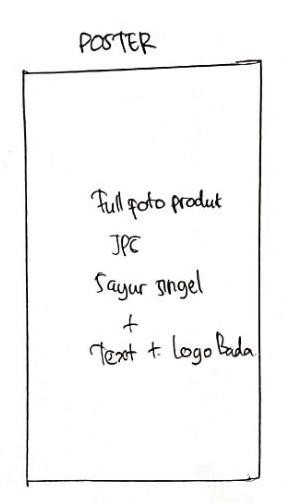 POSTER
Full foto produk
JPG
Sayur singel
+
Text + Logo Bada